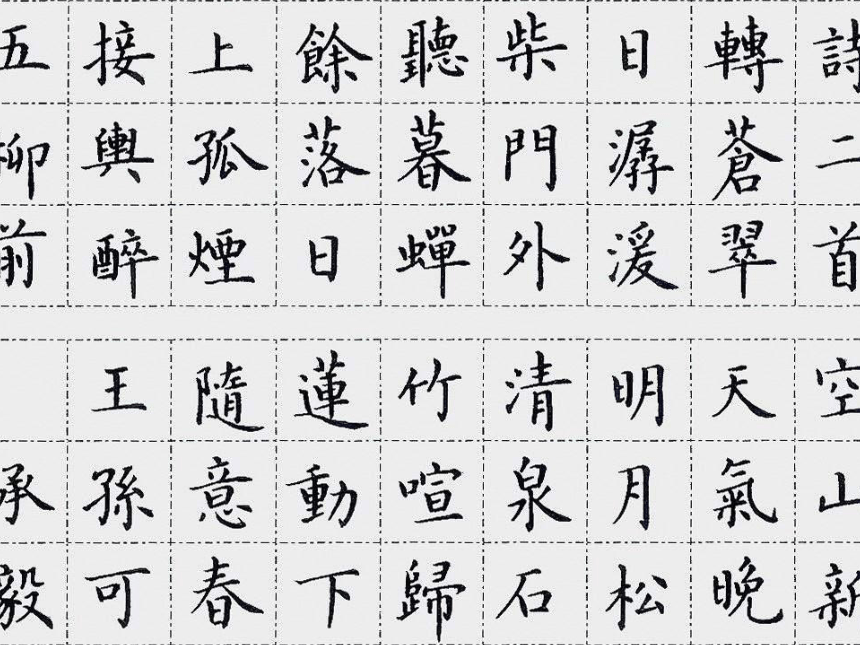 詩二首
轉蒼翠
日潺湲
柴門外
聽暮蟬
餘落日
上孤煙
接輿醉
五柳前
空山新
天氣晚
明月松
清泉石
竹喧歸
蓮動下
隨意春
王孫可
承毅